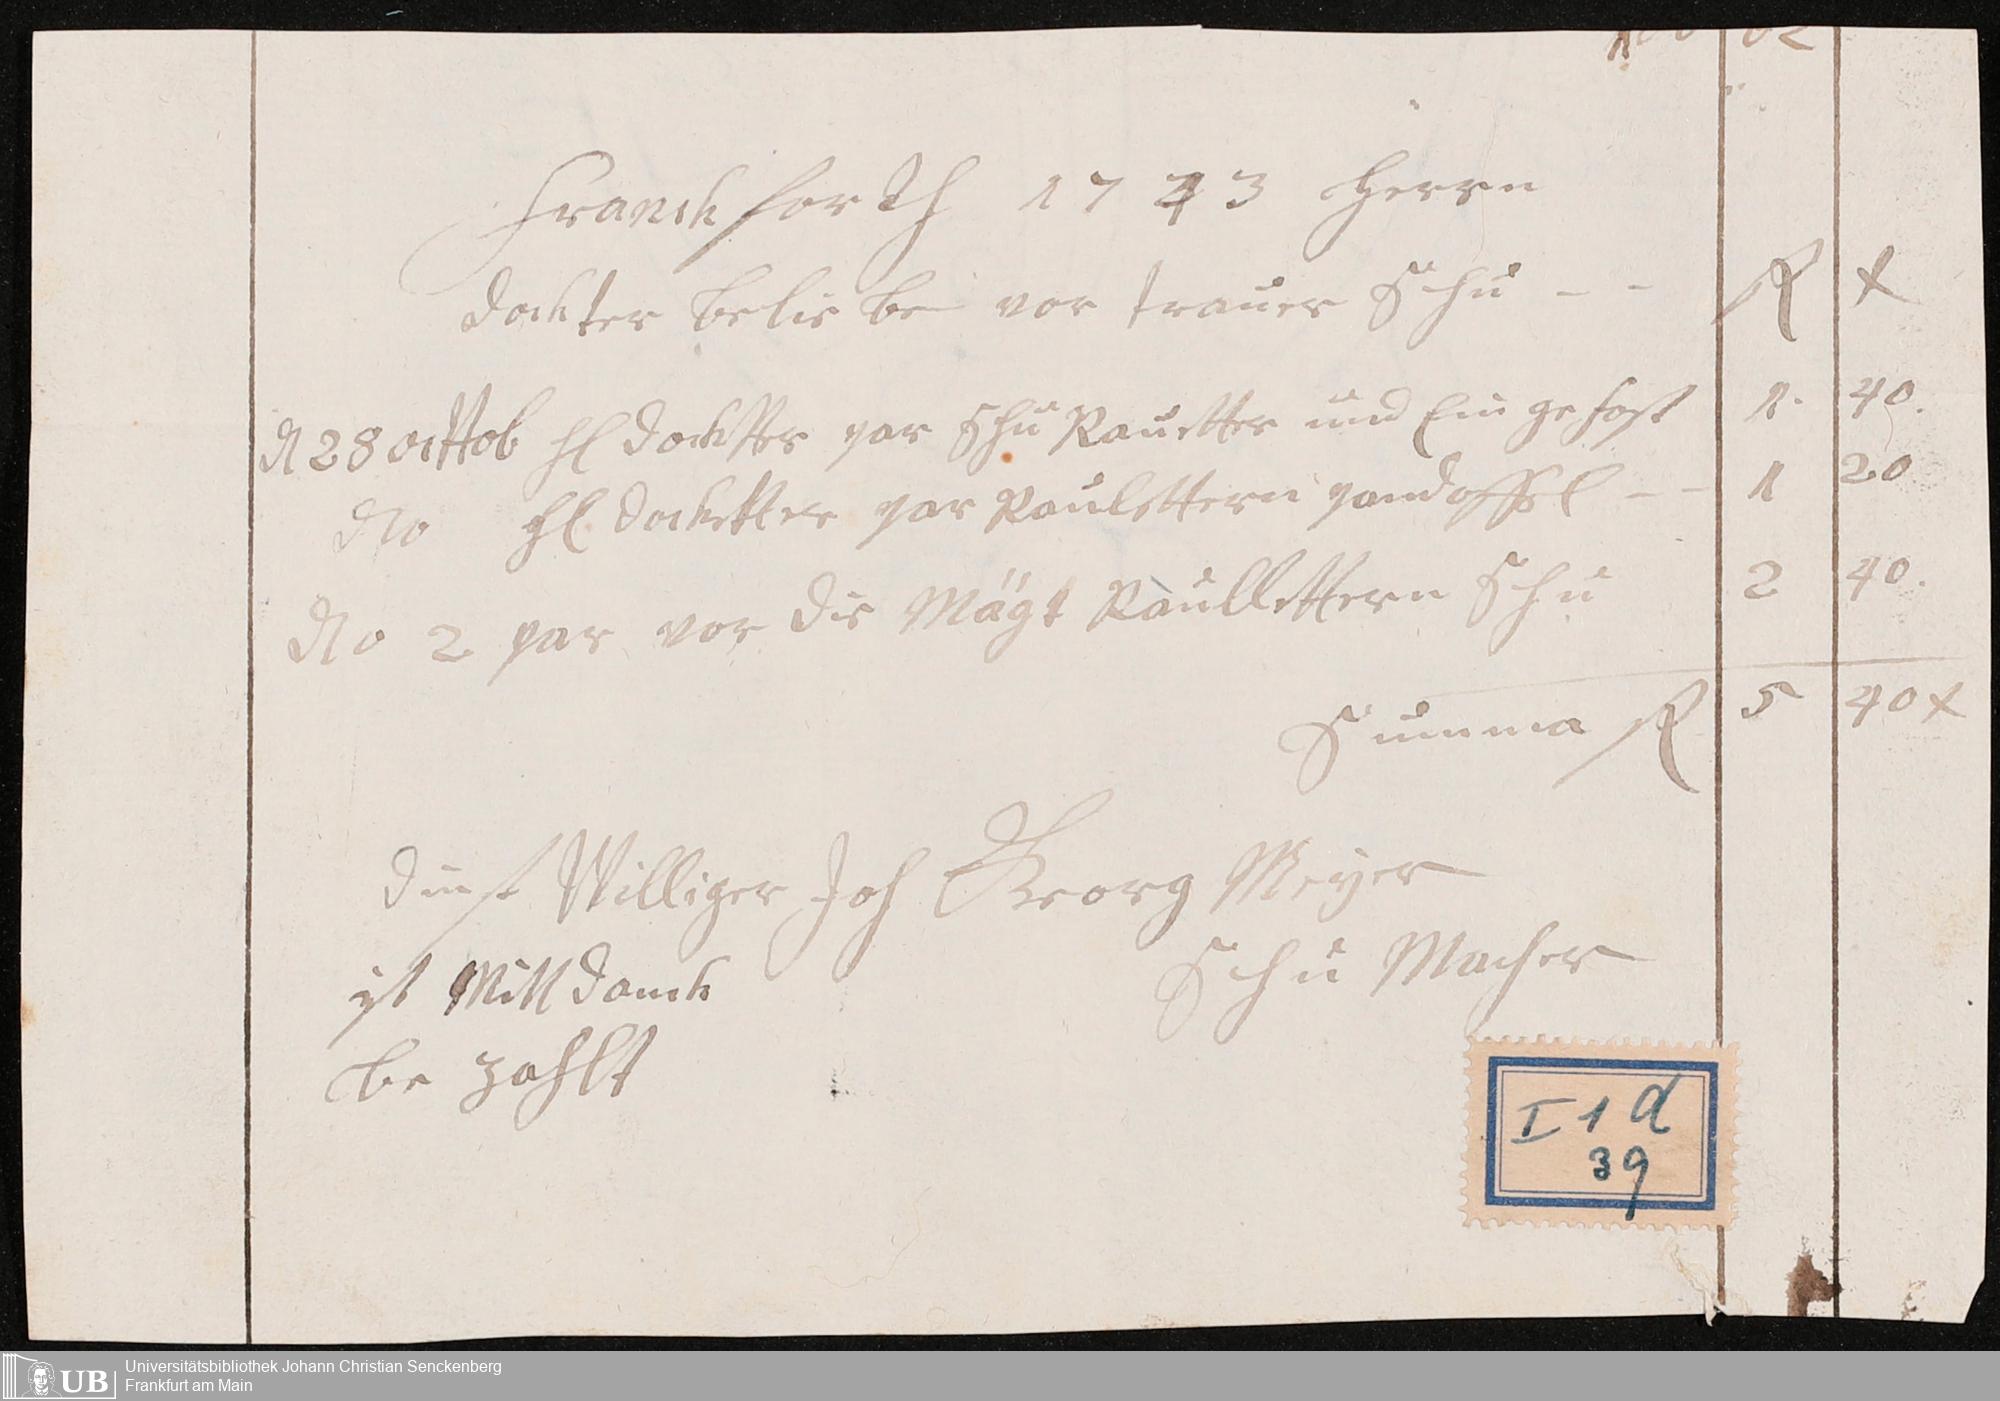 Franckforth 1743 Herrn
dockter beliebe vor trauer Schu - - R x
d 28 octtob H dockter par Schu Rauletter und Ein gefast 1. 40.
dto H dockter par Raulettern pandoffel - - 1 20
dto 2 par vor die Mägt Raullettern Schu 2 40.
Summa R 5 40 x
dinst Williger Joh Georg Meyer
Schu Macher
ist Mitt danck
be zahlt
I 1 d
39
UB
Universitätsbibliothek Johann Christian Senckenberg
Frankfurt am Main